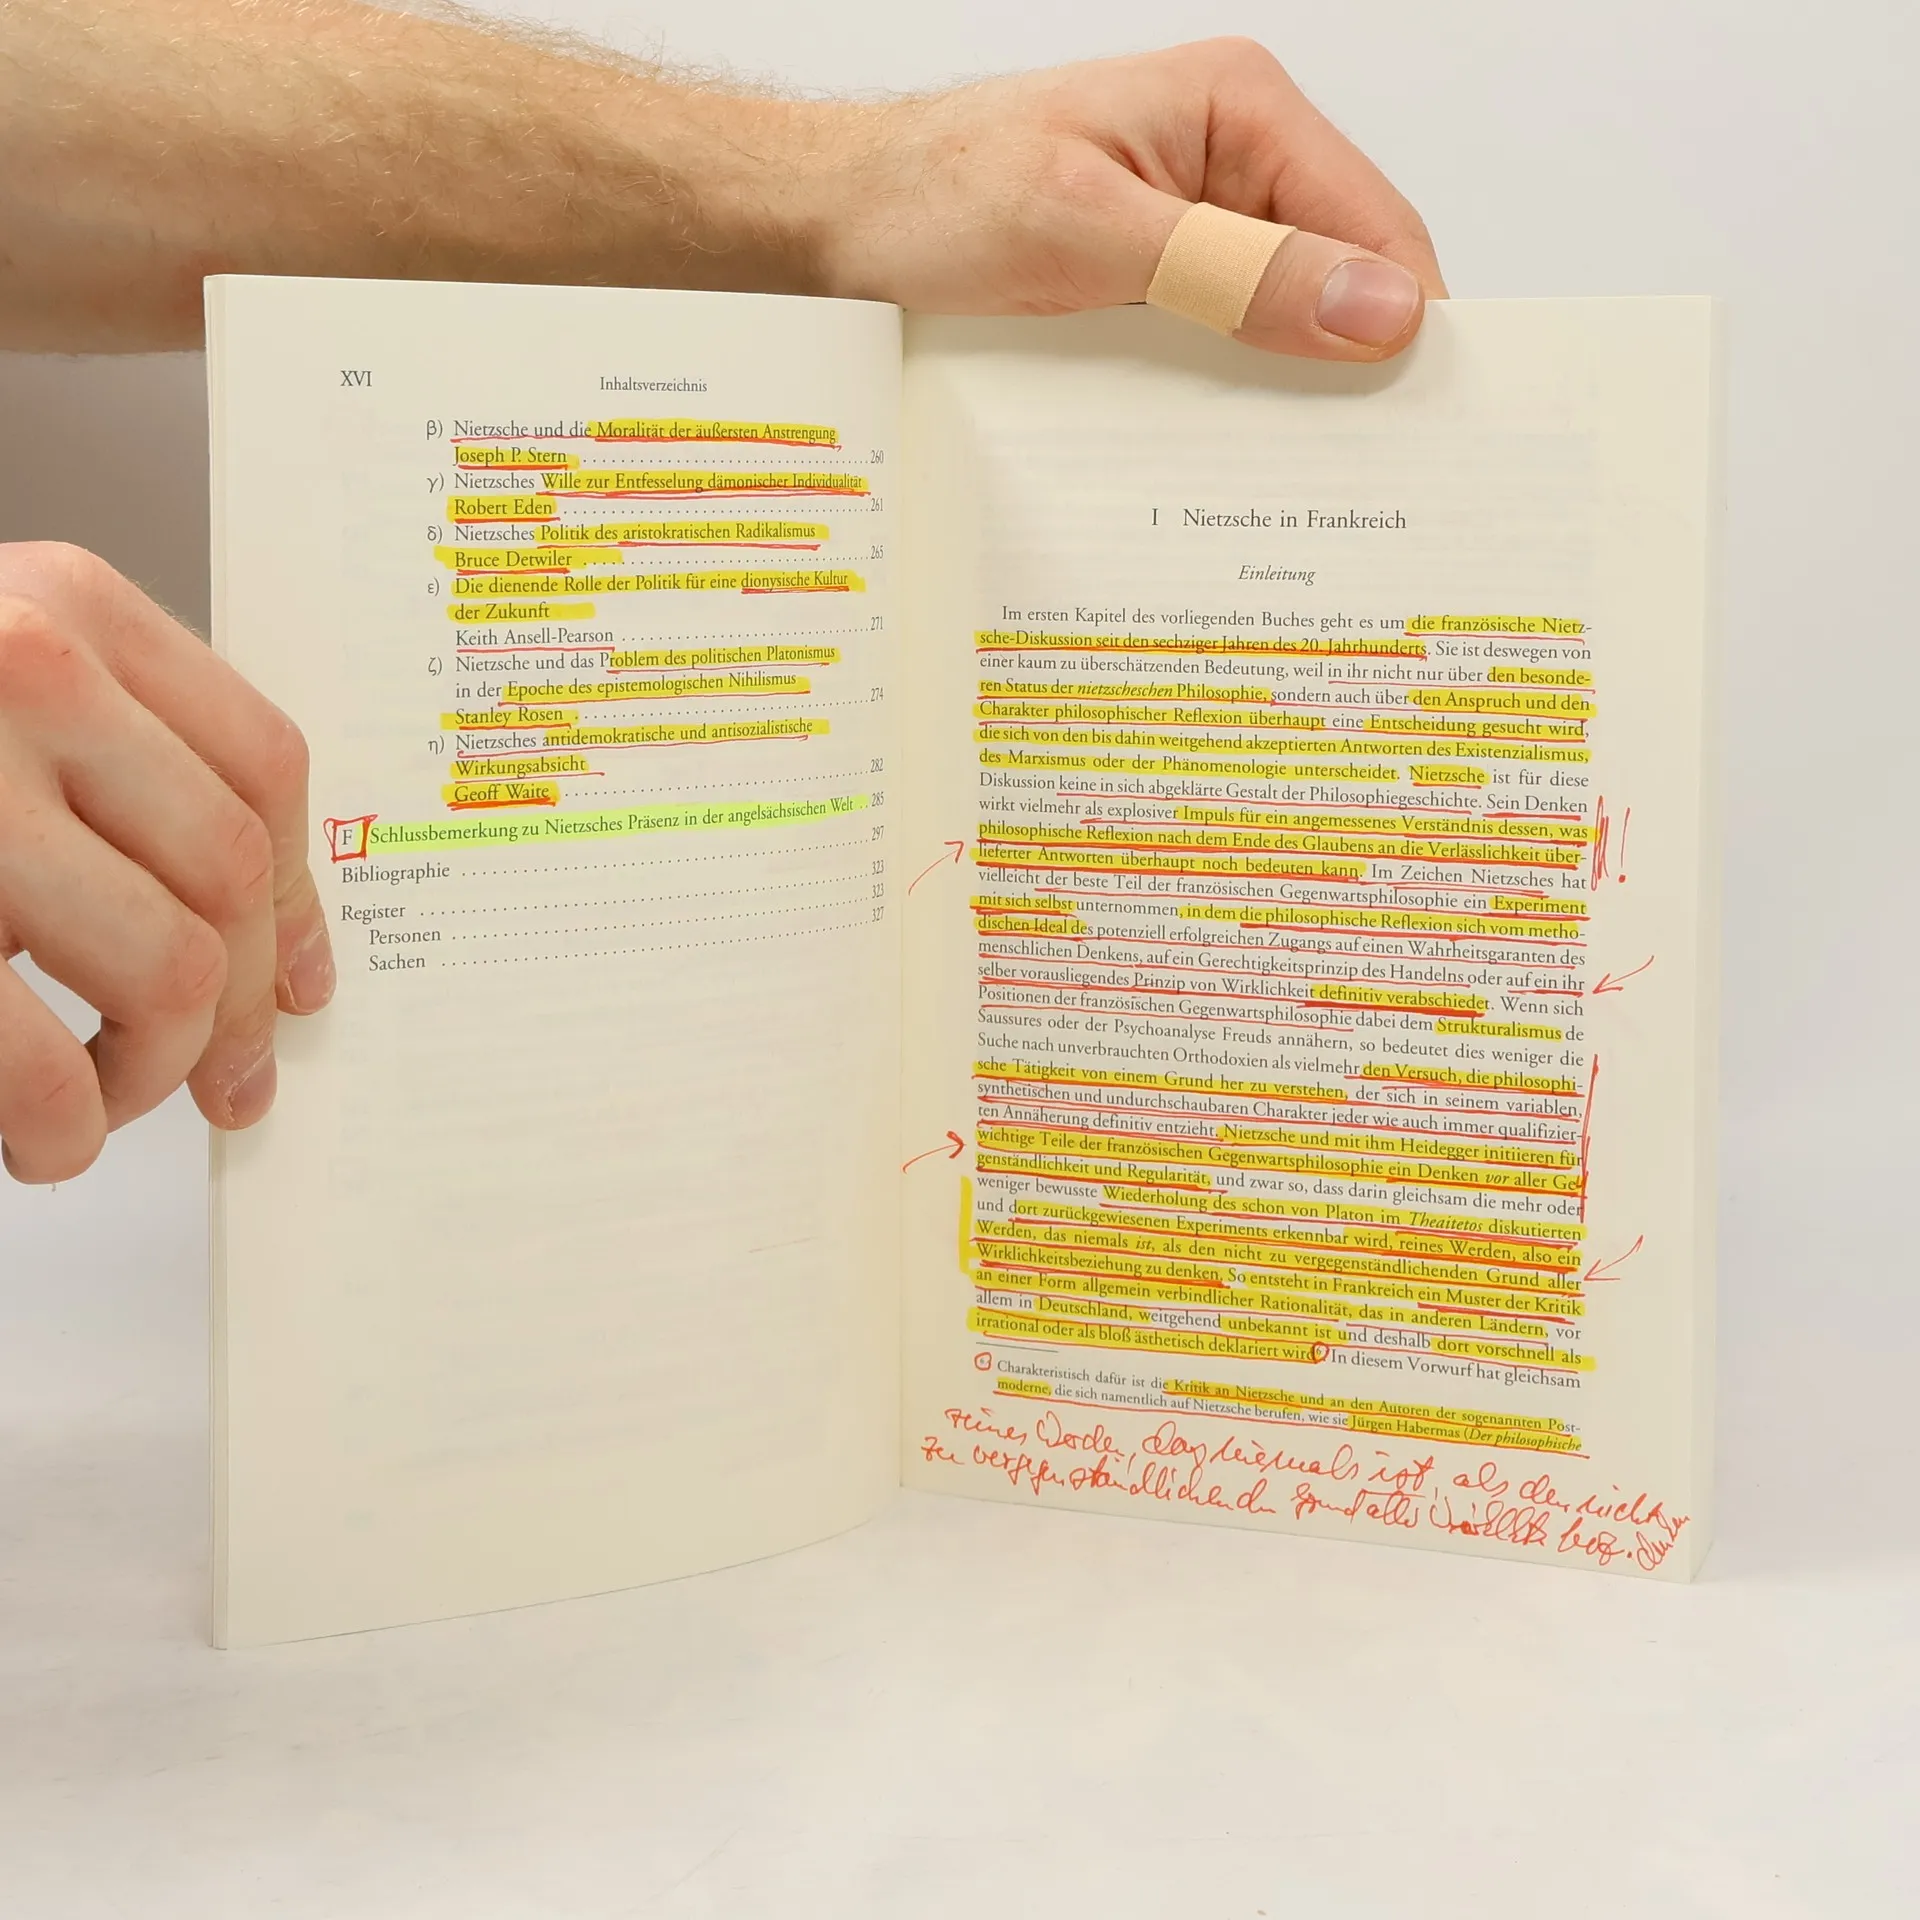 XVI
Inhaltsverzeichnis
β) Nietzsche und die Moralität der äußersten Anstrengung
Joseph P. Stern ........................................ 260
γ) Nietzsches Wille zur Entfesselung dämonischer Individualität
Robert Eden ........................................ 261
δ) Nietzsches Politik des aristokratischen Radikalismus
Bruce Detwiler ........................................ 265
ε) Die dienende Rolle der Politik für eine dionysische Kultur
der Zukunft
Keith Ansell-Pearson ........................................ 271
ζ) Nietzsche und das Problem des politischen Platonismus
in der Epoche des epistemologischen Nihilismus
Stanley Rosen ........................................ 274
η) Nietzsches antidemokratische und antisozialistische
Wirkungsabsicht
Geoff Waite ........................................ 282
F Schlussbemerkung zu Nietzsches Präsenz in der angelsächsischen Welt .. 285
Bibliographie ........................................ 297
Register ........................................ 323
Personen ........................................ 323
Sachen ........................................ 327
I Nietzsche in Frankreich
Einleitung
Im ersten Kapitel des vorliegenden Buches geht es um die französische Nietz-
sche-Diskussion seit den sechziger Jahren des 20. Jahrhunderts. Sie ist deswegen von
einer kaum zu überschätzenden Bedeutung, weil in ihr nicht nur über den besonde-
ren Status der nietzscheschen Philosophie, sondern auch über den Anspruch und den
Charakter philosophischer Reflexion überhaupt eine Entscheidung gesucht wird,
die sich von den bis dahin weitgehend akzeptierten Antworten des Existenzialismus,
des Marxismus oder der Phänomenologie unterscheidet. Nietzsche ist für diese
Diskussion keine in sich abgeklärte Gestalt der Philosophiegeschichte. Sein Denken
wirkt vielmehr als explosiver Impuls für ein angemessenes Verständnis dessen, was
philosophische Reflexion nach dem Ende des Glaubens an die Verlässlichkeit über-
lieferter Antworten überhaupt noch bedeuten kann. Im Zeichen Nietzsches hat
vielleicht der beste Teil der französischen Gegenwartsphilosophie ein Experiment
mit sich selbst unternommen, in dem die philosophische Reflexion sich vom metho-
dischen Ideal des potenziell erfolgreichen Zugangs auf einen Wahrheitsgaranten des
menschlichen Denkens, auf ein Gerechtigkeitsprinzip des Handelns oder auf ein ihr
selber vorausliegendes Prinzip von Wirklichkeit definitiv verabschiedet. Wenn sich
Positionen der französischen Gegenwartsphilosophie dabei dem Strukturalismus de
Saussures oder der Psychoanalyse Freuds annähern, so bedeutet dies weniger die
Suche nach unverbrauchten Orthodoxien als vielmehr den Versuch, die philosophi-
sche Tätigkeit von einem Grund her zu verstehen, der sich in seinem variablen,
synthetischen und undurchschaubaren Charakter jeder wie auch immer qualifizier-
ten Annäherung definitiv entzieht. Nietzsche und mit ihm Heidegger initiieren für
wichtige Teile der französischen Gegenwartsphilosophie ein Denken vor aller Ge-
genständlichkeit und Regularität, und zwar so, dass darin gleichsam die mehr oder
weniger bewusste Wiederholung des schon von Platon im Theaitetos diskutierten
und dort zurückgewiesenen Experiments erkennbar wird, reines Werden, also ein
Werden, das niemals ist, als den nicht zu vergegenständlichenden Grund aller
Wirklichkeitsbeziehung zu denken. So entsteht in Frankreich ein Muster der Kritik
an einer Form allgemein verbindlicher Rationalität, das in anderen Ländern, vor
allem in Deutschland, weitgehend unbekannt ist und deshalb dort vorschnell als
irrational oder als bloß ästhetisch deklariert wird. In diesem Vorwurf hat gleichsam
Charakteristisch dafür ist die Kritik an Nietzsche und an den Autoren der sogenannten Post-
moderne, die sich namentlich auf Nietzsche berufen, wie sie Jürgen Habermas (Der philosophische
reines Werden, das niemals ist, als den nicht
zu vergegenständlichenden Grund aller